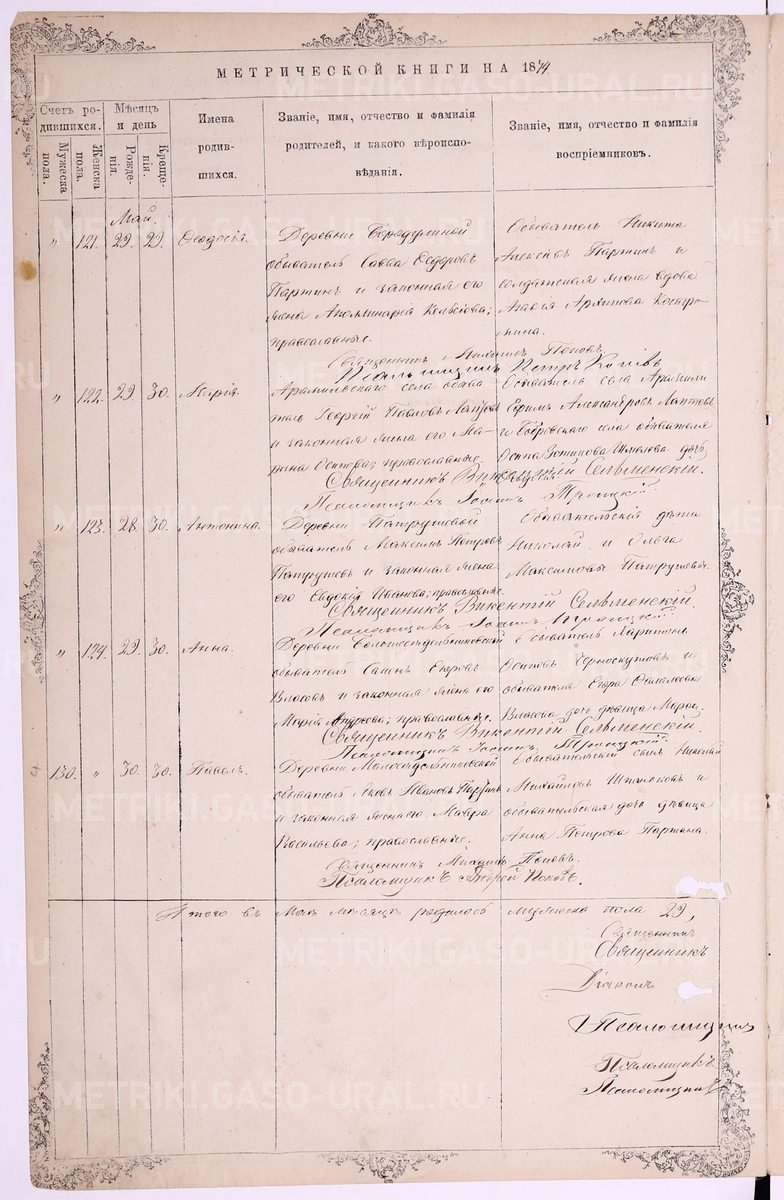 МЕТРИЧЕСКОЙ КНИГИ НА 1874.
Счетъ родившихся.
Мужеска пола.
Женска пола.
Мѣсяцъ и день
Рожденія.
Крещенія.
Имена родившихся.
Званіе, имя, отчество и фамилія родителей, и какого вѣроисповѣданія.
Званіе, имя, отчество и фамилія воспріемниковъ.
Май.
" 121. 29. 29. Ѳеодосія.
Деревни
обыватель Савва Ѳедоровъ
Партинъ и законная его
жена Апполинарія
православные.
Обыватель Никита
Алексѣевъ Партинъ и
солдатская жена вдова
Архипова Костро-
мина.
Священникъ Михаилъ Поповъ.
Псаломщикъ Петръ
" 122. 29. 30. Марія.
Арамильскаго села обыва-
тель Георгій Павловъ Лаптевъ
и законная жена его Ма-
рина Осипова; православные.
Обыватель села Арамили
Ефимъ Александровъ Лаптевъ
и Бобровскаго села обывателя
Осипа дочь
Священникъ Викентій Сельменскій.
Псаломщикъ Іоаннъ Троицкій.
" 123. 28. 30. Антонина.
Деревни Патрушевой
обыватель Максимъ Петровъ
Патрушевъ и законная жена
его Евдокія Иванова; православные.
Обывательскія дѣти
Николай и Ольга
Максимовы Патрушевы.
Священникъ Викентій Сельменскій.
Псаломщикъ Іоаннъ Троицкій.
" 124. 29. 30. Анна.
Деревни Большесѣдельниковской
обыватель Семенъ Егоровъ
Власовъ и законная жена его
Марія Андреева; православные.
обыватель Ларіонъ
Осиповъ Черноскутовъ и
обывателя Егора
Власова дочь дѣвица
Священникъ Викентій Сельменскій.
Псаломщикъ Іоаннъ Троицкій.
130. " 30. 30. Павелъ.
Деревни Малосѣдельниковской
обыватель Яковъ Ивановъ Партинъ
и законная жена его Мавра
Васильева; православные.
Обывательскій сынъ Николай
Михайловъ и
обывательская дочь дѣвица
Анна Петрова Партина.
Священникъ Михаилъ Поповъ.
Псаломщикъ Андрей Поповъ.
Итого въ Маѣ мѣсяцѣ родилось мужеска пола 29,
Священникъ
Священникъ
Діаконъ
Псаломщикъ
Псаломщикъ
Псаломщикъ
METRIKI.GASO-URAL.RU